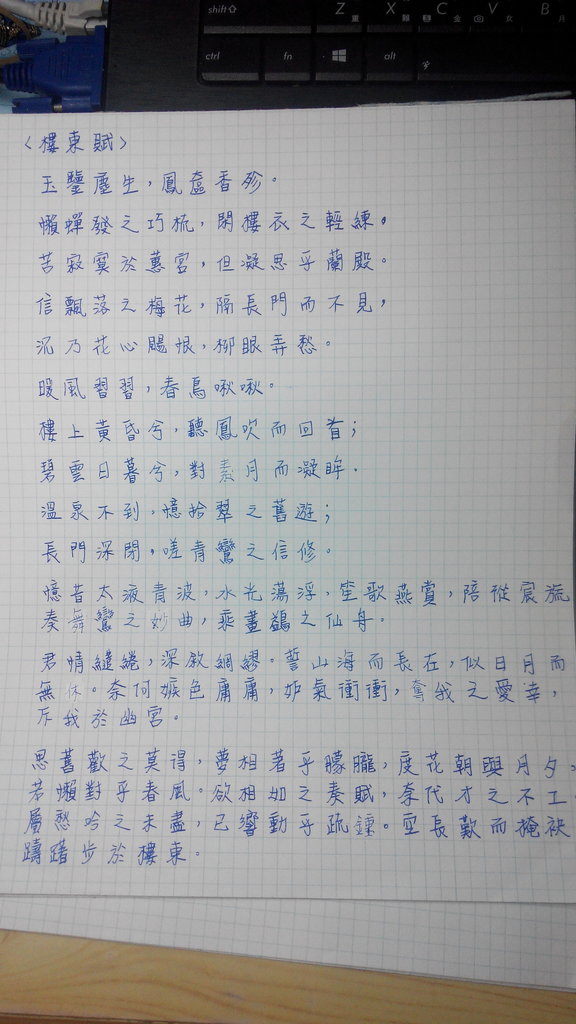 shift⇧ Z 重 X 難 C 金 V 女 B 月
ctrl fn alt
〈樓東賦〉
玉鑒塵生，鳳奩香殄。
懶蟬發之巧梳，閑樓衣之輕練。
苦寂寞於蕙宮，但凝思乎蘭殿。
信飄落之梅花，隔長門而不見，
況乃花心颺恨，柳眼弄愁。
暖風習習，春鳥啾啾。
樓上黃昏兮，聽鳳吹而回首；
碧雲日暮兮，對素月而凝眸．
溫泉不到，憶拾翠之舊遊；
長門深閉，嗟青鸞之信修。
憶昔太液青波，水光蕩浮，笙歌燕賞，陪從宸旒
奏舞鸞之妙曲，乘畫鷁之仙舟．
君情繾綣，深敘綢繆。誓山海而長在，似日月而
無休。奈何嫉色庸庸，妒氣衝衝，奪我之愛幸，
斥我於幽宮。
思舊歡之莫得，夢相著乎朦朧，度花朝與月夕，
若懶對乎春風。欲相如之奏賦，奈代才之不工
屬愁吟之未盡，已響動乎疏鐘。空長歎而掩袂
躊躇步於樓東。